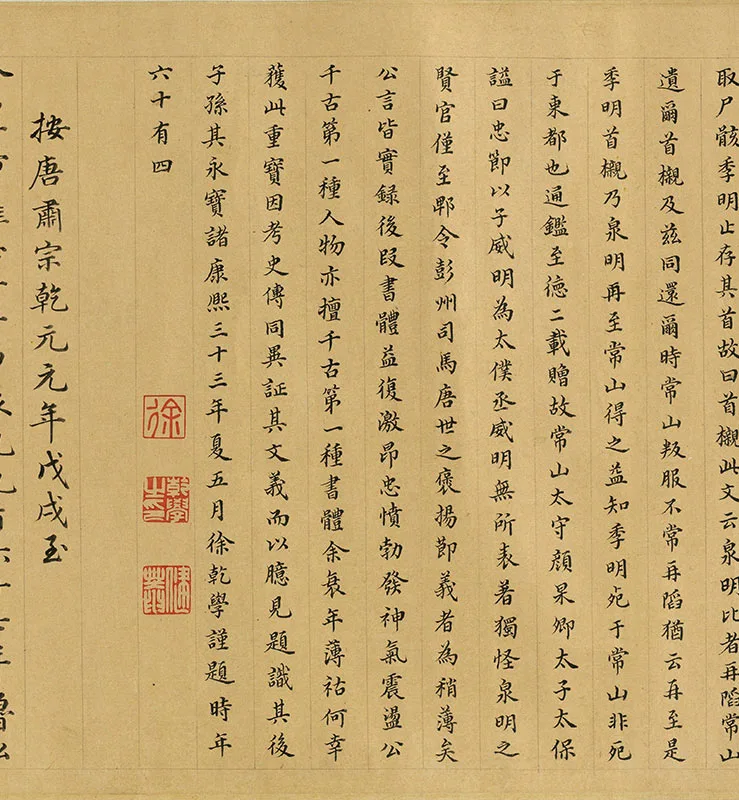 取尸骸季明止存其首故曰首櫬此文云泉明比者再陷常山
遺爾首櫬及茲同還爾時常山叛服不常再陷猶云再至是
季明首櫬乃泉明再至常山得之益知季明死于常山非死
于東都也通鑑至德二載贈故常山太守顏杲卿太子太保
謚曰忠節以子威明為太僕丞威明無所表著獨怪泉明之
賢官僅至郫令彭州司馬唐世之褒揚節義者為稍薄矣
公言皆實錄後段書體益復激昂忠憤勃發神氣震盪公
千古第一種人物亦擅千古第一種書體余衰年薄祜何幸
獲此重寶因考史傳同異証其文義而以臆見題識其後
子孫其永寶諸康熙三十三年夏五月徐乾學謹題時年
六十有四
徐
乾學之印
健菴
按唐肅宗乾元元年戊戌至